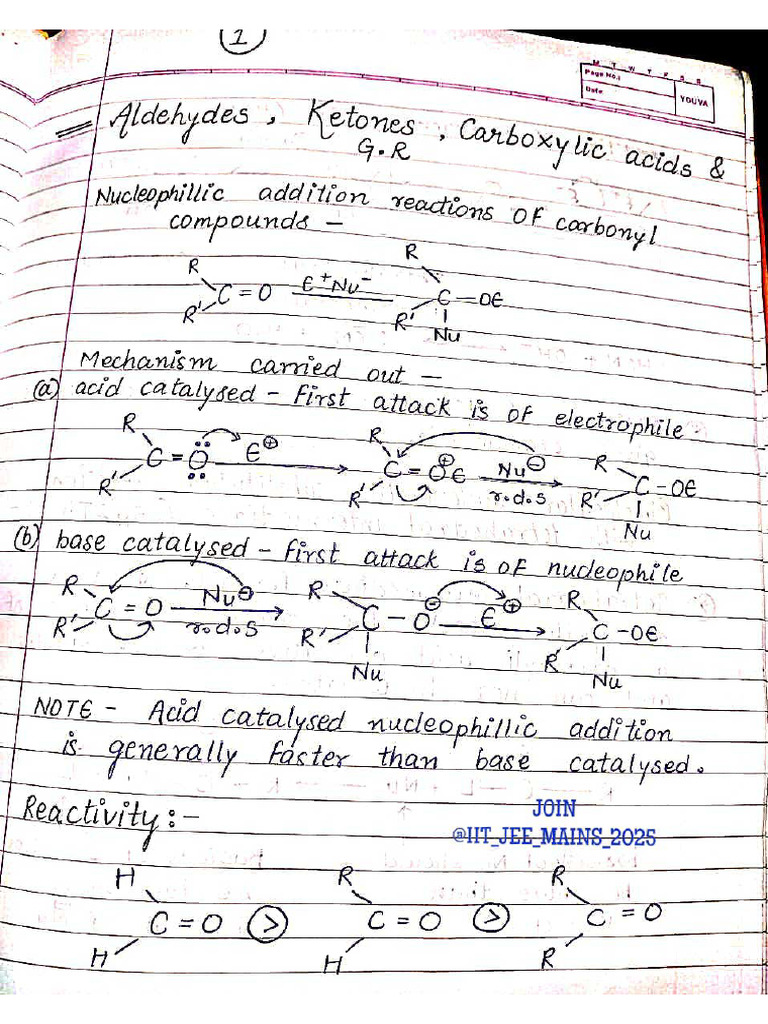 1
M T W T F S S
Page No.:
Date
YOUVA
Aldehydes, Ketones, Carboxylic acids &
G.R
Nucleophillic addition reactions OF carbonyl
compounds –
R
R' C = O E⁺Nu⁻ R R' C – OE
Nu
Mechanism carried out –
(a) acid catalysed – first attack is of electrophile.
R R' C = O E⊕ R R' C = O⊕E Nu⊖ r.d.s R R' C – OE
Nu
(b) base catalysed – first attack is of nucleophile
R R' C = O Nu⊖ r.d.s R R' C – O⊖ E⊕ R R' C – OE
Nu Nu
NOTE – Acid catalysed nucleophillic addition
is generally faster than base catalysed.
Reactivity :–
JOIN
@IIT_JEE_MAINS_2025
H H C = O > R H C = O > R R C = O